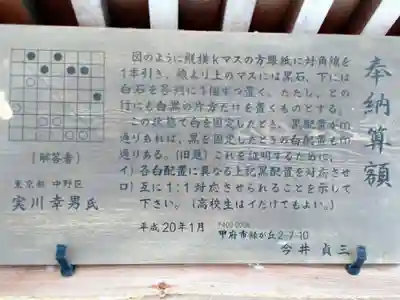 奉納算額
図のように縦横kマスの方眼紙に対角線を
1本引き、線より上のマスには黒石、下には
白石を各列に1個ずつ置く。ただし、どの
行にも白黒の片方だけを置くものとする。
この状態で白を固定したとき、黒配置がm
通りあれば、黒を固定したときの白配置もm
通りある。(旧題) これを証明するために、
イ) 各白配置に異なる上記黒配置を対応させ
ロ) 互に1:1対応させられることを示して
下さい。(高校生はイだけでもよい。)
平成20年1月
〒400-0008
甲府市緑が丘2-7-10
今井 貞三
[解答者]
東京都 中野区
実川 幸男氏